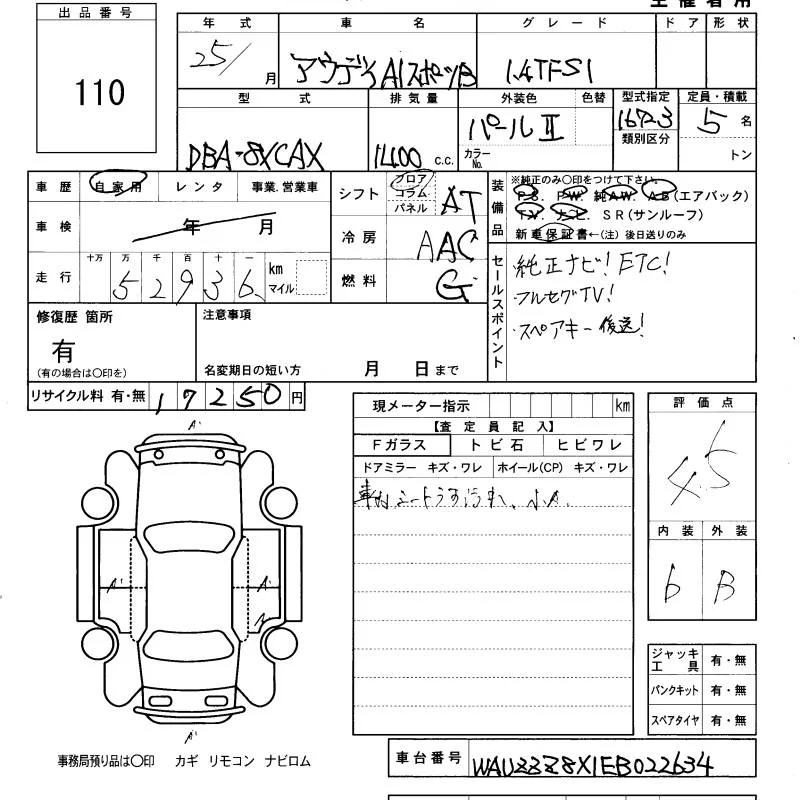 主催者用
出品番号
110
年式 車名 グレード ドア 形状
25/ 月 アウディA1スポーツB 1.4TFSI
型式 排気量 外装色 色替 型式指定 定員・積載
DBA-8XCAX 1400 c.c. パールⅡ 16723 5 名
カラーNo. 類別区分 トン
車歴 自家用 レンタ 事業.営業車
車検 年 月
走行 十万 万 千 百 十 一 km マイル
5 2 9 3 6
シフト フロア コラム パネル AT
冷房 AAC
燃料 G
装備品 ※純正のみ〇印をつけて下さい。
P.S. P.W. 純A.W. A.B(エアバック)
T.V. ナビ. S R(サンルーフ)
新車保証書←(注) 後日送りのみ
セールスポイント
・純正ナビ! ETC!
・フルセグTV!
・スペアキー 後送!
修復歴 箇所
有
(有の場合は〇印を)
注意事項
名変期日の短い方 月 日まで
リサイクル料 有・無 1 7 2 5 0 円
現メーター指示 km
【査定員記入】
Fガラス トビ石 ヒビワレ
ドアミラー キズ・ワレ ホイール(CP) キズ・ワレ
シートうす汚れ、小A.
評価点
4.5
内装 外装
b B
A'
A' A'
A'
ジャッキ 工具 有・無
パンクキット 有・無
スペアタイヤ 有・無
事務局預り品は〇印 カギ リモコン ナビロム
車台番号 WAUZZZ8X1EB022634